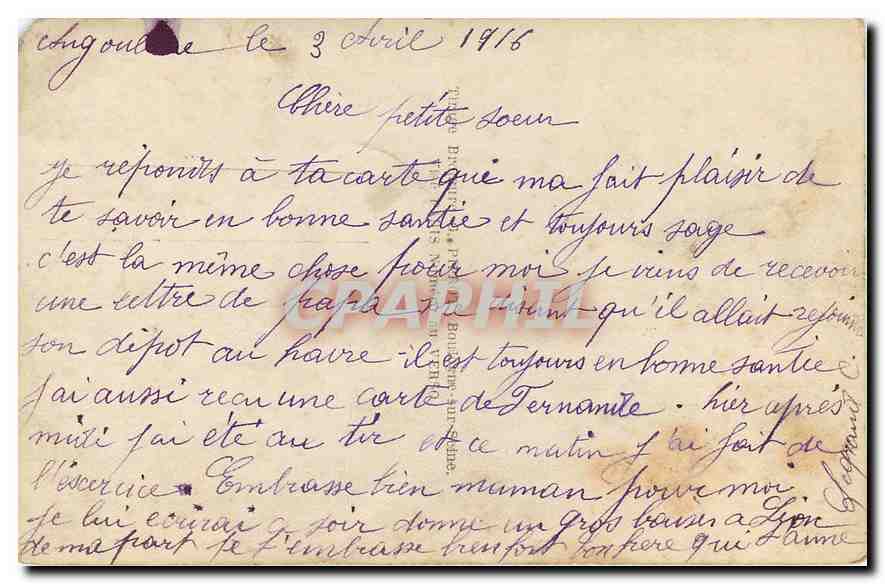 Angoulême le 3 Avril 1916
Chère petite soeur
je réponds à ta carte qui ma fait plaisir de
te savoir en bonne santée et toujours sage
c'est la même chose pour moi je viens de recevoir
une lettre de papa me disant qu'il allait rejoindre
son dépot au havre il est toujours en bonne santée
j'ai aussi recu une carte de Fernande. hier après
midi j'ai été au tir et ce matin j'ai fait de
l'éxercice. Embrasse bien maman pour moi
je lui ecrirai ce soir donne un gros baiser a Léon
de ma part je t'embrasse bien fort ton frère qui t'aime
Legrand C
CPAPHIL